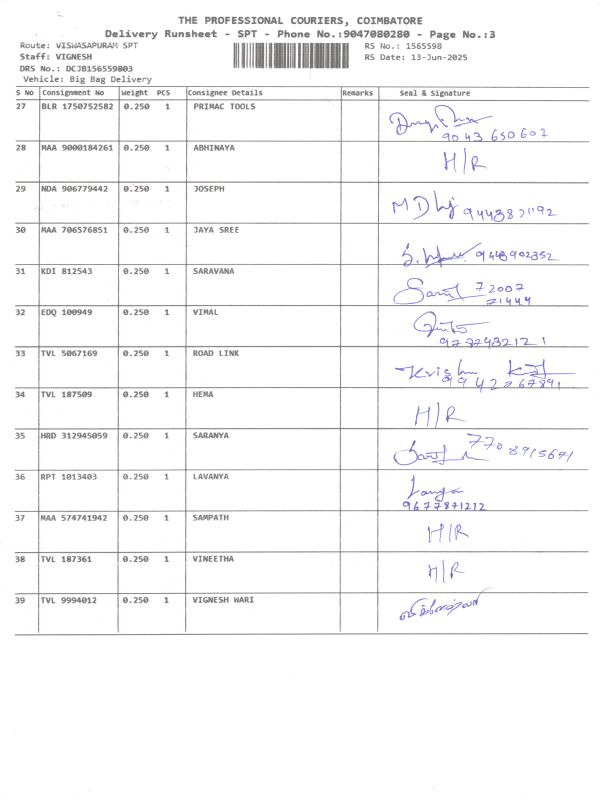 THE PROFESSIONAL COURIERS, COIMBATORE
Delivery Runsheet - SPT - Phone No.:9047080280 - Page No.:3
Route: VISWASAPURAM SPT RS No.: 1565598
Staff: VIGNESH RS Date: 13-Jun-2025
DRS No.: DCJB156559803
Vehicle: Big Bag Delivery
S No Consignment No Weight PCS Consignee Details Remarks Seal & Signature
27 BLR 1750752582 0.250 1 PRIMAC TOOLS
9043 650 607
28 MAA 9000184261 0.250 1 ABHINAYA H/R
29 NDA 906779442 0.250 1 JOSEPH
30 MAA 706576851 0.250 1 JAYA SREE
31 KDI 812543 0.250 1 SARAVANA
72007
21444
32 EDQ 100949 0.250 1 VIMAL
33 TVL 5067169 0.250 1 ROAD LINK Krish
34 TVL 187509 0.250 1 HEMA H/R
35 HRD 312945059 0.250 1 SARANYA
36 RPT 1013403 0.250 1 LAVANYA
9677871212
37 MAA 574741942 0.250 1 SAMPATH H/R
38 TVL 187361 0.250 1 VINEETHA H/R
39 TVL 9994012 0.250 1 VIGNESH WARI